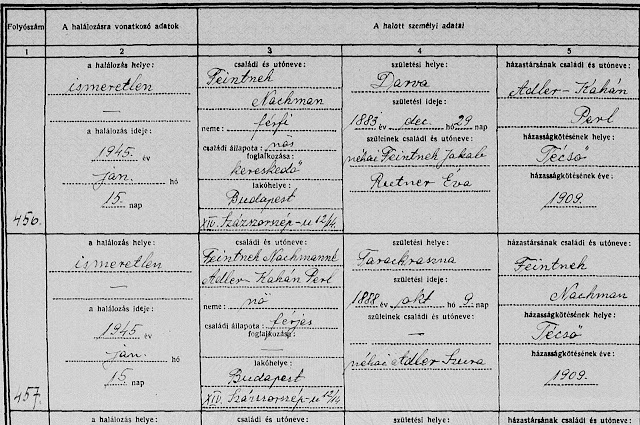 Folyószám
A halálozásra vonatkozó adatok
A halott személyi adatai
1
2
3
4
5
a halálozás helye:
ismeretlen
—
a halálozás ideje:
1945. év
jan. hó
15. nap
456.
családi és utóneve:
Feintneh
Nachman
neme: férfi
családi állapota: nős
foglalkozása:
kereskedő
lakóhelye:
Budapest
XIV. Százszorszép-u 12/14.
születési helye:
Darva
születési ideje:
1883 év dec. hó 29 nap
szüleinek családi és utóneve:
néhai Feintneh Jakab
Rutner Éva
házastársának családi és utóneve:
Adler-Kahán
Perl
házasságkötésének helye:
Técső
házasságkötésének éve:
1909.
a halálozás helye:
ismeretlen
—
a halálozás ideje:
1945 év
jan. hó
15. nap
457.
családi és utóneve:
Feintneh Nachmanné
Adler-Kahán Perl
neme: nő
családi állapota: férjes
foglalkozása:
—
lakóhelye:
Budapest
XIV. Százszorszép-u 12/14
születési helye:
Tarackraszna
születési ideje:
1888 év okt hó 9. nap
szüleinek családi és utóneve:
—
néhai Adler Szura
házastársának családi és utóneve:
Feintneh
Nachman
házasságkötésének helye:
Técső
házasságkötésének éve:
1909.
a halálozás helye:
családi és utóneve:
születési helye:
házastársának családi és utóneve: